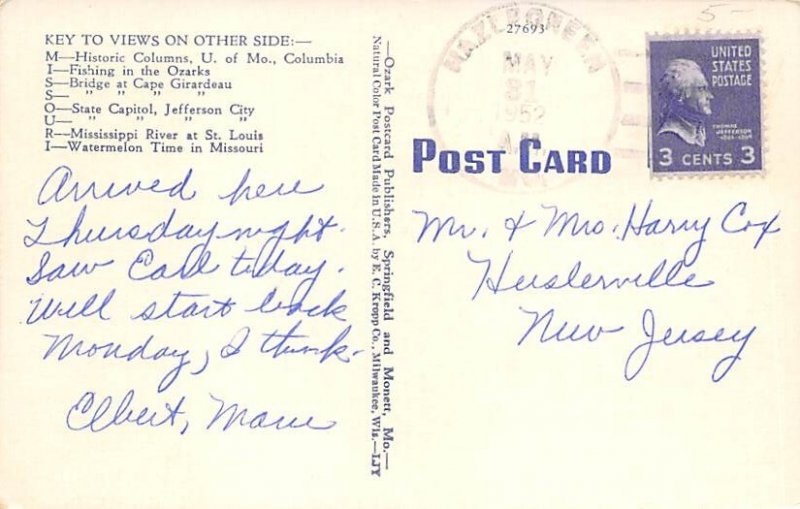 KEY TO VIEWS ON OTHER SIDE:—
M—Historic Columns, U. of Mo., Columbia
I—Fishing in the Ozarks
S—Bridge at Cape Girardeau
S— " " " "
O—State Capitol, Jefferson City
U— " " " "
R—Mississippi River at St. Louis
I—Watermelon Time in Missouri
Arrived here
Thursday night.
Saw Carl today.
Will start back
Monday, I think.
Elbert, Marie
—Ozark Postcard Publishers, Springfield and Monett, Mo.—
Natural Color Post Card Made in U.S.A. by E. C. Kropp Co., Milwaukee, Wis.—LJY
27693
HAZLEGREEN
MAY
31
1952
A.M.
MO.
5-
UNITED
STATES
POSTAGE
THOMAS
JEFFERSON
3 CENTS 3
POST CARD
Mr. & Mrs. Harry Cox
Heislerville
New Jersey